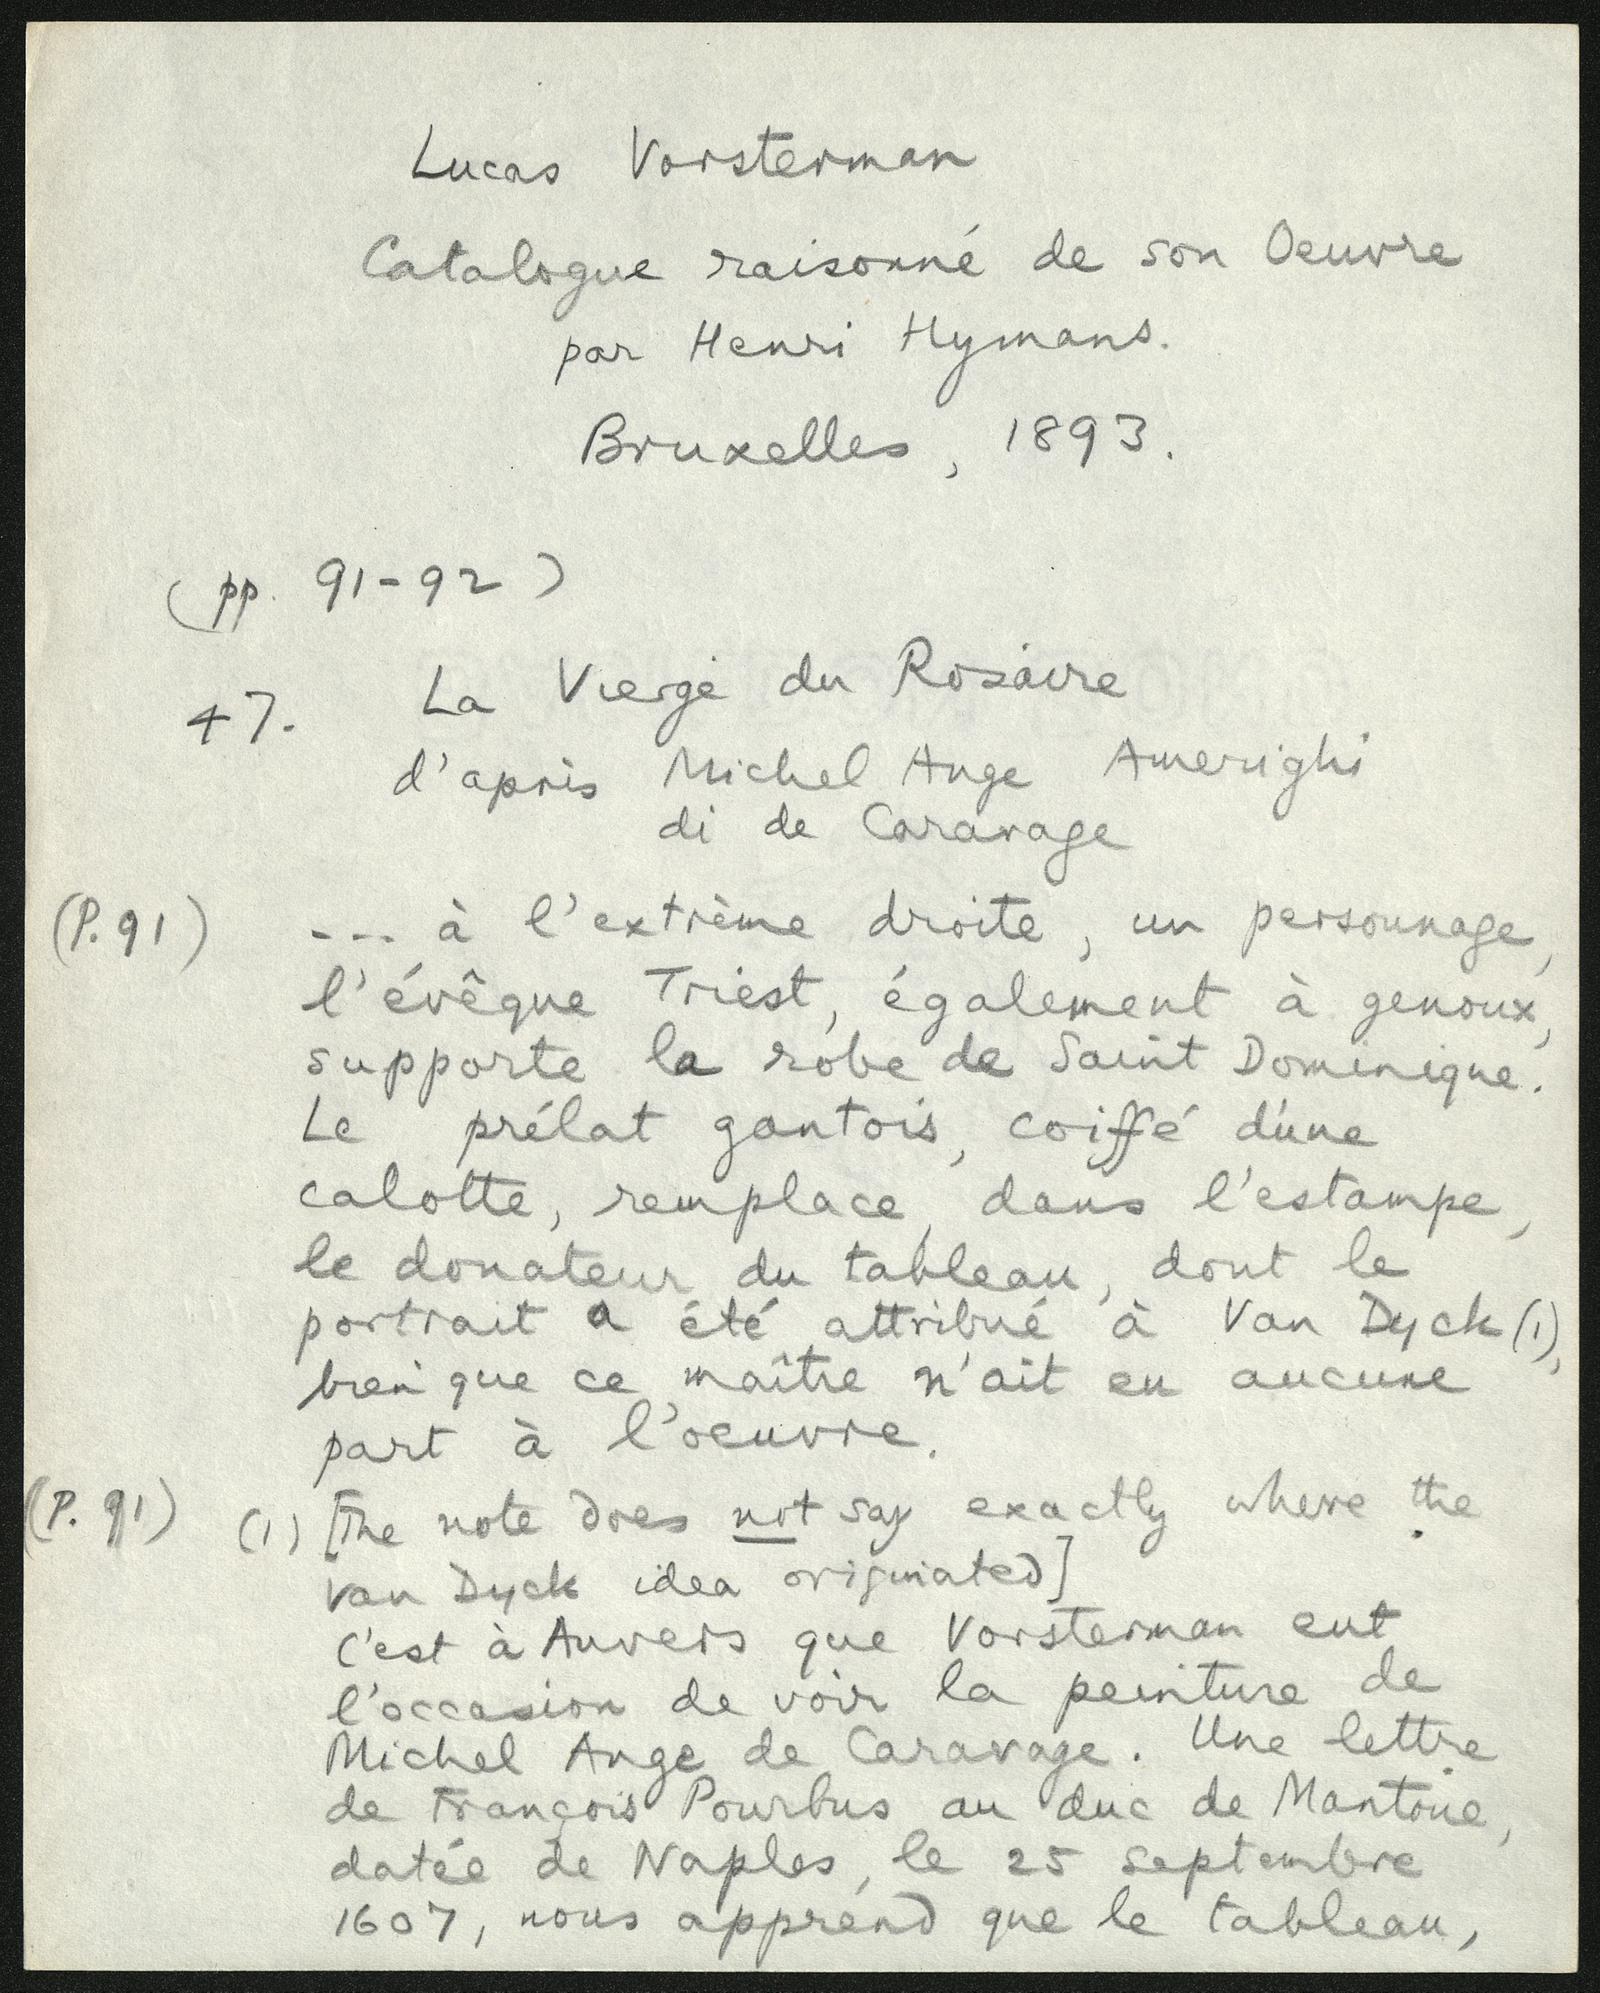 Lucas Vorsterman
Catalogue raisonné de son Oeuvre
par Henri Hymans.
Bruxelles, 1893.
(pp. 91-92)
47. La Vierge du Rosaire
d'après Michel Ange Amerighi
di de Caravage
(P. 91) --- à l'extrème droite, un personnage,
l'évêque Triest, également à genoux,
supporte la robe de Saint Dominique.
Le prélat gantois, coiffé d'une
calotte, remplace, dans l'estampe,
le donateur du tableau, dont le
portrait a été attribué à Van Dyck (1),
bien que ce maître n'ait eu aucune
part à l'oeuvre.
(P. 91) (1) [The note does not say exactly where the
Van Dyck idea originated]
C'est à Anvers que Vorsterman eut
l'occasion de voir la peinture de
Michel Ange de Caravage. Une lettre
de François Pourbus au duc de Mantoue,
datée de Naples, le 25 septembre
1607, nous apprend que le tableau,